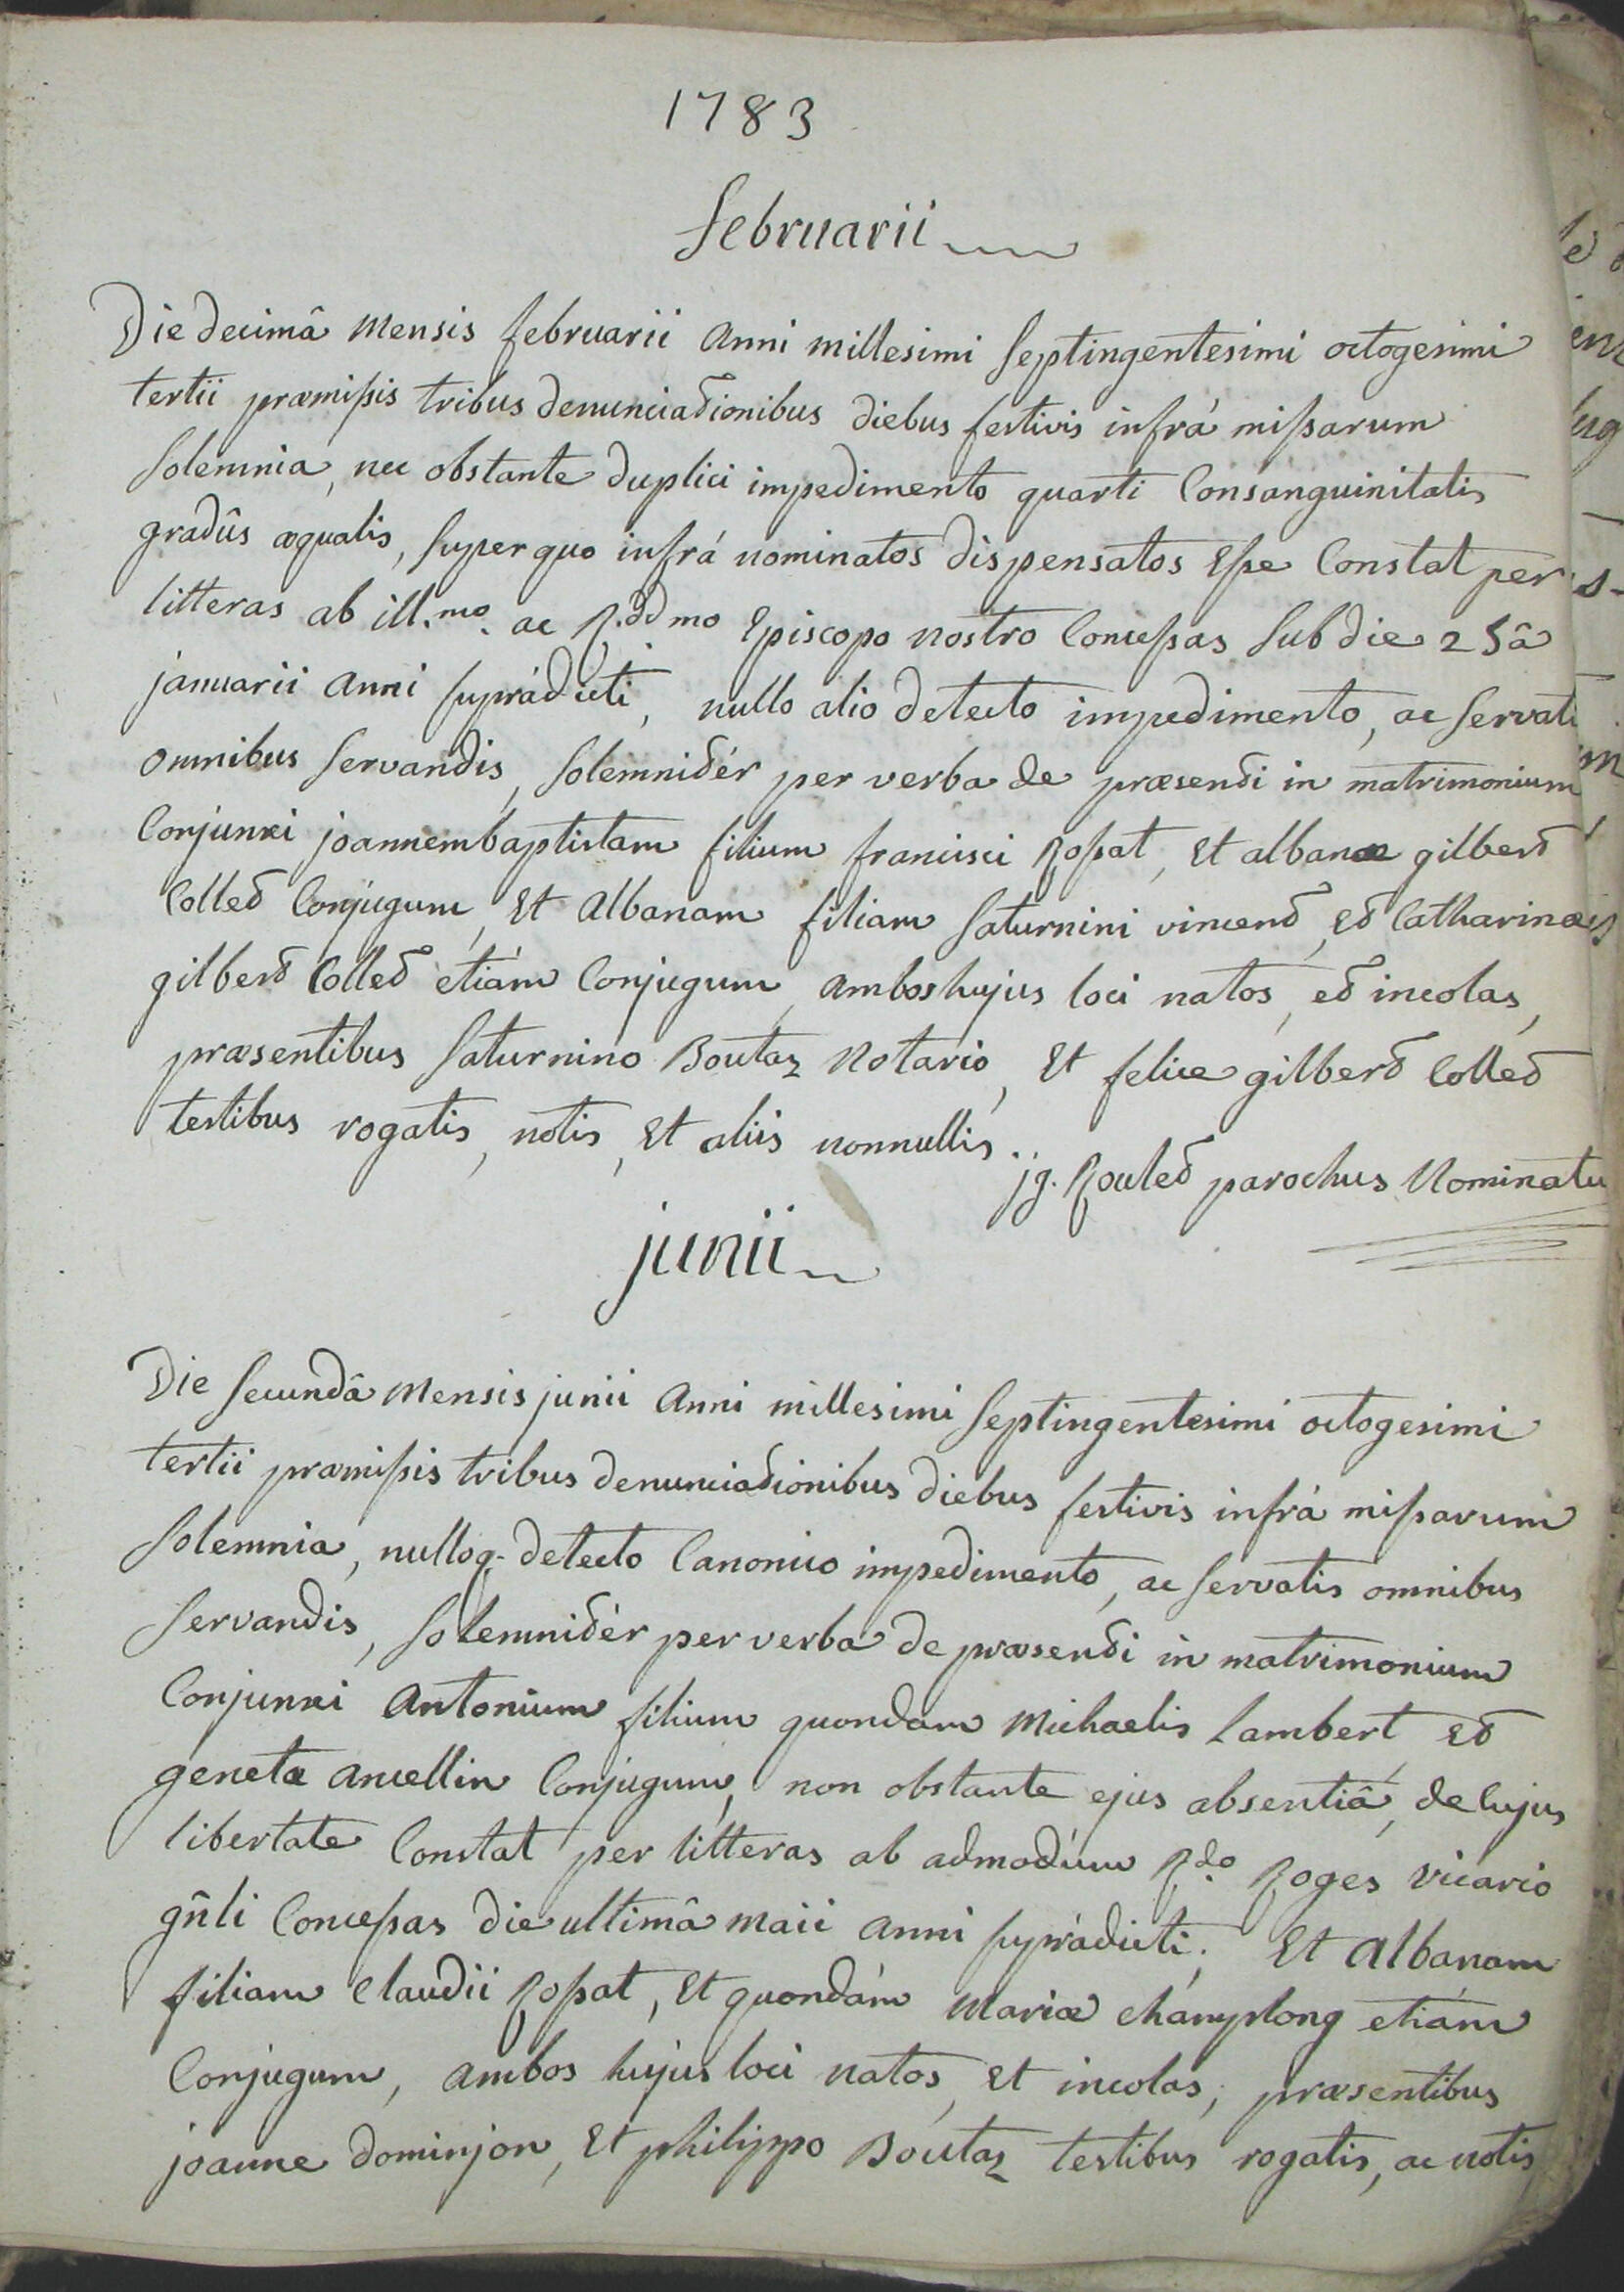 1783
februarii
Die decimâ mensis februarii anni millesimi septingentesimi octogesimi
tertii præmissis tribus denunciationibus diebus festivis infrá missarum
solemnia, nec obstante duplici impedimento quarti Consanguinitatis
gradûs æqualis, super quo infrá nominatos dispensatos esse Constat per
litteras ab ill.mo. ac R.ddmo Episcopo nostro Concessas sub die 25â
januarii anni suprádicti, nullo alio detecto impedimento, ac servati
omnibus servandis, solemnitér per verba de præsenti in matrimonium
Conjunxi joannembaptistam filium francisci Rossat, et albanæ gilbert
Collet Conjugum, et Albanam filiam saturnini vincent, et Catharinæ
gilbert Collet etiám Conjugum, ambos hujus loci natos, et incolas,
præsentibus saturnino Boutaz Notario, et felice gilbert Collet
testibus rogatis, notis, et aliis nonnullis.
jg. Roulet parochus Nominatu
junii
Die secundâ mensis junii anni millesimi septingentesimi octogesimi
tertii præmissis tribus denunciationibus diebus festivis infrá missarum
solemnia, nulloq. detecto Canonico impedimento, ac servatis omnibus
servandis, solemnitér per verba de præsenti in matrimonium
Conjunxi Antonium filium quondam Michaelis Lambert, et
genetæ ancellin Conjugum, non obstante ejus absentiâ, de Cujus
libertate Constat per litteras ab admodúm R.do Roges vicario
gñli Concessas die ultimâ maii anni suprádicti; Et Albanam
filiam Claudii Rossat, et quondám Mariæ champlong etiám
Conjugum, ambos hujus loci natos, et incolas; præsentibus
joanne dominjon, et philippo Boutaz testibus rogatis, ac notis,